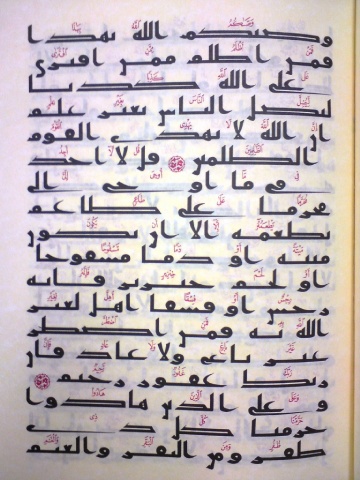 وصيكم الله بهذا
فمن اظلم ممن افترى
على الله كذبا
ليضل الناس بغير علم
ان الله لا يهدى القوم
الظلمين قل لا اجد
فى ما اوحى الى
محرما على طاعم
يطعمه الا ان يكون
ميتة او دما مسفوحا
او لحم خنزير فانه
رجس او فسقا اهل لغير
الله به فمن اضطر
غير باغ ولا عاد فان
ربك غفور رحيم
و على الذين هادوا
حرمنا كل ذى
ظفر ومن البقر والغنم